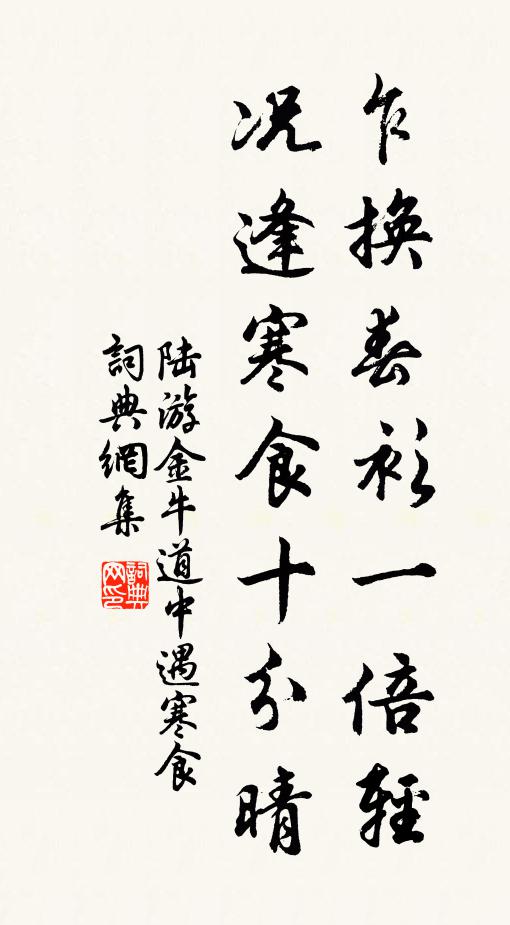 乍換春衫一倍輕
况逢寒食十分晴
陆游金牛道中遇寒食
詞典網集
詞典网印